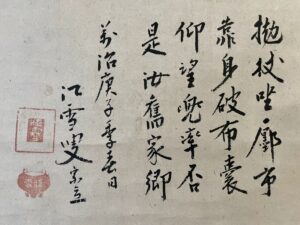 拋杖坐鄽市
靠身破布囊
仰望兜率否
是汝舊家鄉
萬治庚子季春日
江雪叟宗立